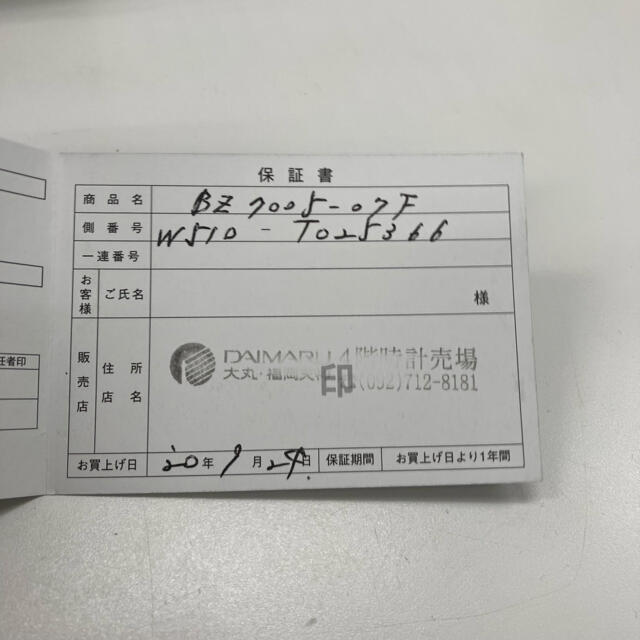 保証書
商品名 BZ 7005-07F
側番号 W510 - T025366
一連番号
お客様 ご氏名 様
販売店 住所 店名
DAIMARU 4階時計売場
大丸・福岡天神 印 (092)712-8181
お買上げ日 20年 9月 24日 保証期間 お買上げ日より1年間
任者印